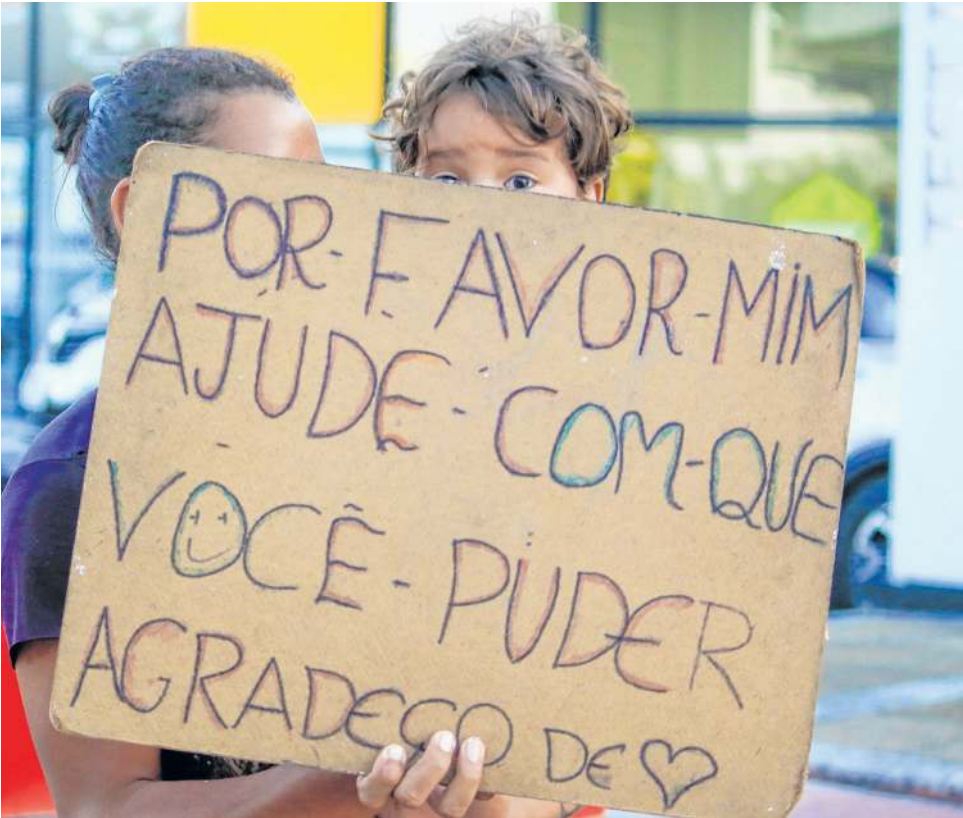 POR-FAVOR-MIM
AJUDE-COM-QUE
VOCÊ-PUDER
AGRADEÇO DE ♡